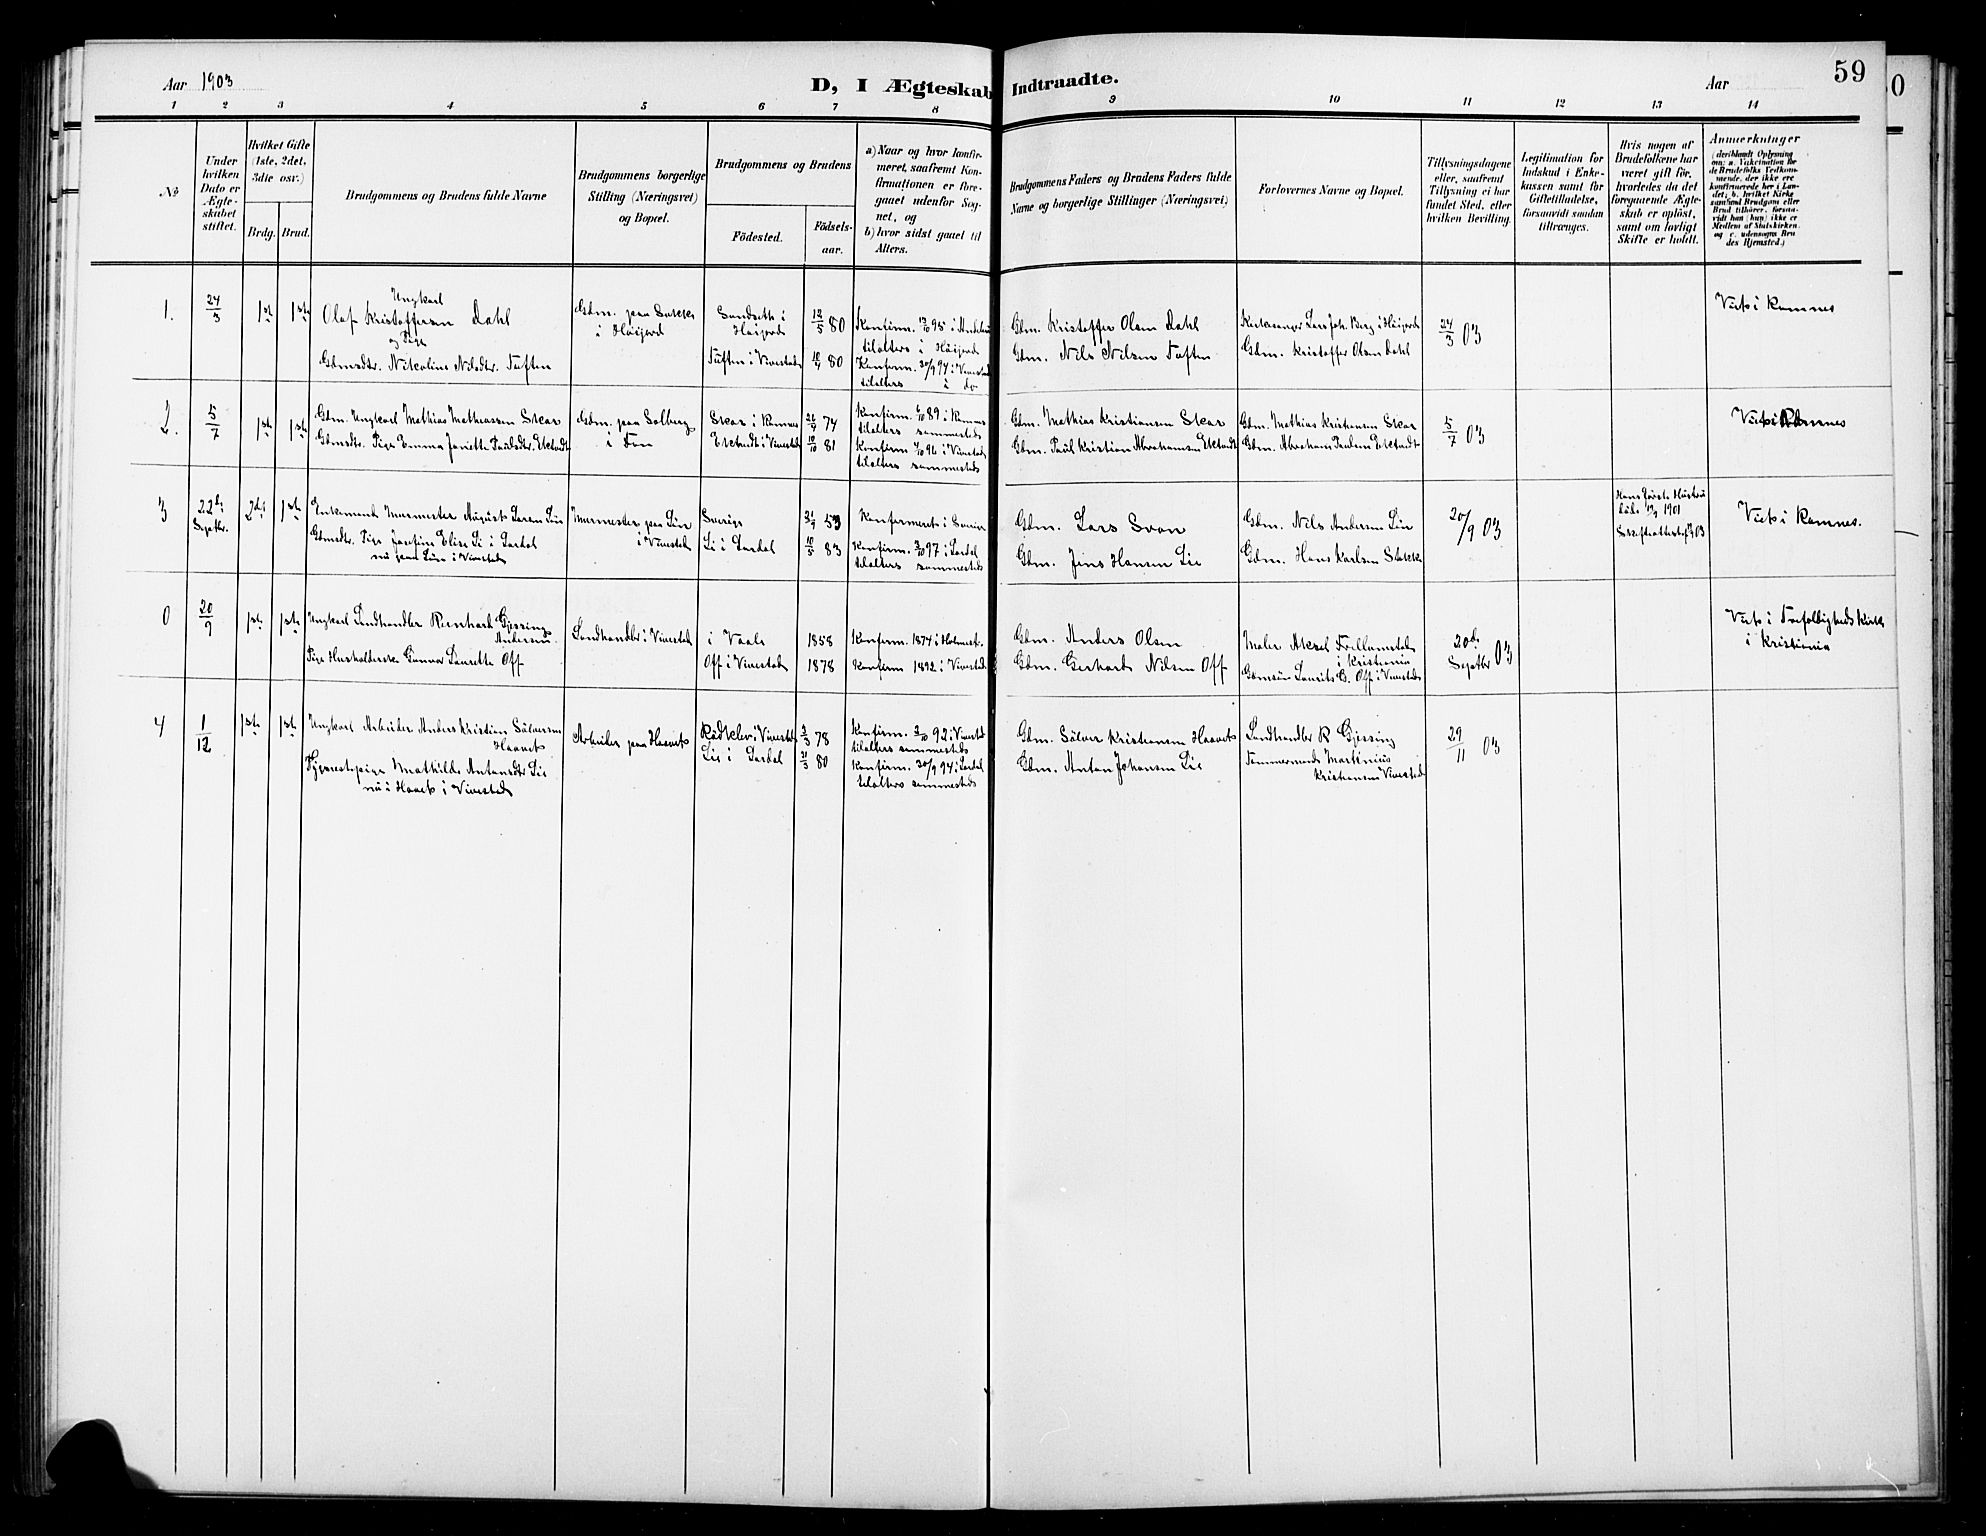 Aar 1903
D, I Ægteskab Indtraadte.
Aar
59
1 2 3 4 5 6 7 8 9 10 11 12 13 14
No
Under hvilken Dato er Ægteskabet stiftet.
Hvilket Gifte (1ste, 2det, 3dte osv.)
Brdg. Brud.
Brudgommens og Brudens fulde Navne
Brudgommens borgerlige Stilling (Næringsvei) og Bopæl.
Brudgommens og Brudens
Födested. Födsels-aar.
a) Naar og hvor konfirmeret, saafremt Konfirmationen er foregaaet udenfor Sognet, og
b) hvor sidst gaaet til Alters.
Brudgommens Faders og Brudens Faders fulde Navne og borgerlige Stillinger (Næringsvei)
Forlovernes Navne og Bopæl.
Tillysningsdagene eller, saafremt Tillysning ei har fundet Sted, eller hvilken Bevilling.
Legitimation for Indskud i Enkekassen samt for Giftetilladelse, forsaavidt saadan tiltrænges.
Hvis nogen af Brudefolkene har været gift för, hvorledes da det foregaaende Ægteskab er oplöst, samt om lovligt Skifte er holdt.
Anmærkninger
(deriblandt Oplysning om: a. Vakcination for de Brudefolks Vedkommende, der ikke ere konfirmerede her i Landet; b. hvilket Kirkesamfund Brudgom eller Brud tilhörer, forsaavidt han (hun) ikke er Medlem af Statskirken. og c. udensogns Brudes Hjemsted.)
1. 24/3 1ste 1ste
Ungkarl
Olaf Kristoffersen Dahl
og Pige
Gdmsdtr. Nikoline Nilsdtr. Tuften
Gdm. paa
i Höijord
Sundseth i Höijord
Tuften i Vivestad
12/5 80
80
Konfirm. 95 i
tilalters i Höijord
Konfirm. 30/9 94 i Vivestad
tilalters i do
Gdm. Kristoffer Olsen Dahl
Gdm. Nils Nilsen Tuften
Kirkesanger Lars Joh. Berg i Höijord
Gdm. Kristoffer Olsen Dahl
24/3 03
Viet i Ramnes
2. 5/7 1ste 1ste
Gdm. Ungkarl Mathias Mathiassen Skar
Gdmsdtr. Pige Emma Janette Paulsdtr. Eletvedt
Gdm. paa Solberg
i Fon
Skar i Ramnes
i Vivestad
74
81
Konfirm. 89 i Ramnes
tilalters sammesteds
Konfirm 96 i Vivestad
tilalters sammesteds
Gdm. Mathias Kristiansen Skar
Gdm. Paul Kristian Abrahamsen
Gdm. Mathias Kristiansen Skar
Gdm. Abraham Paulsen
5/7 03
Viet i Ramnes
3 22de Septbr. 2det 1ste
Enkemand Murmester August Larsen Lin
Gdmsdtr. Pige Josefine Elise Li i Lardal
nu paa Lin i Vivestad
Murmester paa Lin
i Vivestad
Sverige
Li i Lardal
53
83
Konfirmeret i Sverige
Konfirm. 97 i Lardal
tilalters sammesteds
Gdm. Lars Svan
Gdm. Jens Hansen Lie
Gdm. Nils Andersen Lin
Gdm. Hans Karlsen
20/9 03
Hans förste Hustru
döde 1901
Skifteattest 1903
Viet i Ramnes.
0 20/9 1ste 1ste
Ungkarl Landhandler Reinhard Gjessing
Andersen
Pige Husholderske Gunnor Laurette Off
Landhandler i Vivestad
i Vaale
Off i Vivestad
1858
1878
Konfirm. 1874 i Holmest.
Konfirm 1892 i Vivestad
Gdm. Anders Olsen
Gdm. Gerhard Nilsen Off
Maler Aksel
i Kristiania
Gdmsön Laurits G. Off i Vivestad
20de Septbr 03
Viet i Trefoldigheds Kirke
i Kristiania
4 1/12 1ste 1ste
Ungkarl Arbeider Anders Kristian Sölversen
Haavet
Tjenestepige Mathilde Antonsdtr Lie
nu i Haavet i Vivestad
Arbeider paa Haavet
Rödklev i Vivestad
Lie i Lardal
78
80
Konfirm. 2/10 92 i Vivestad
tilalters sammesteds
Konfirm. 30/9 94 i Lardal
tilalters sammesteds
Gdm. Sölver Kristiansen Haavet
Gdm. Anton Johansen Lie
Landhandler R Gjessing
Tömmermand Martinius
Kristiansen Vivestad
29/11 03